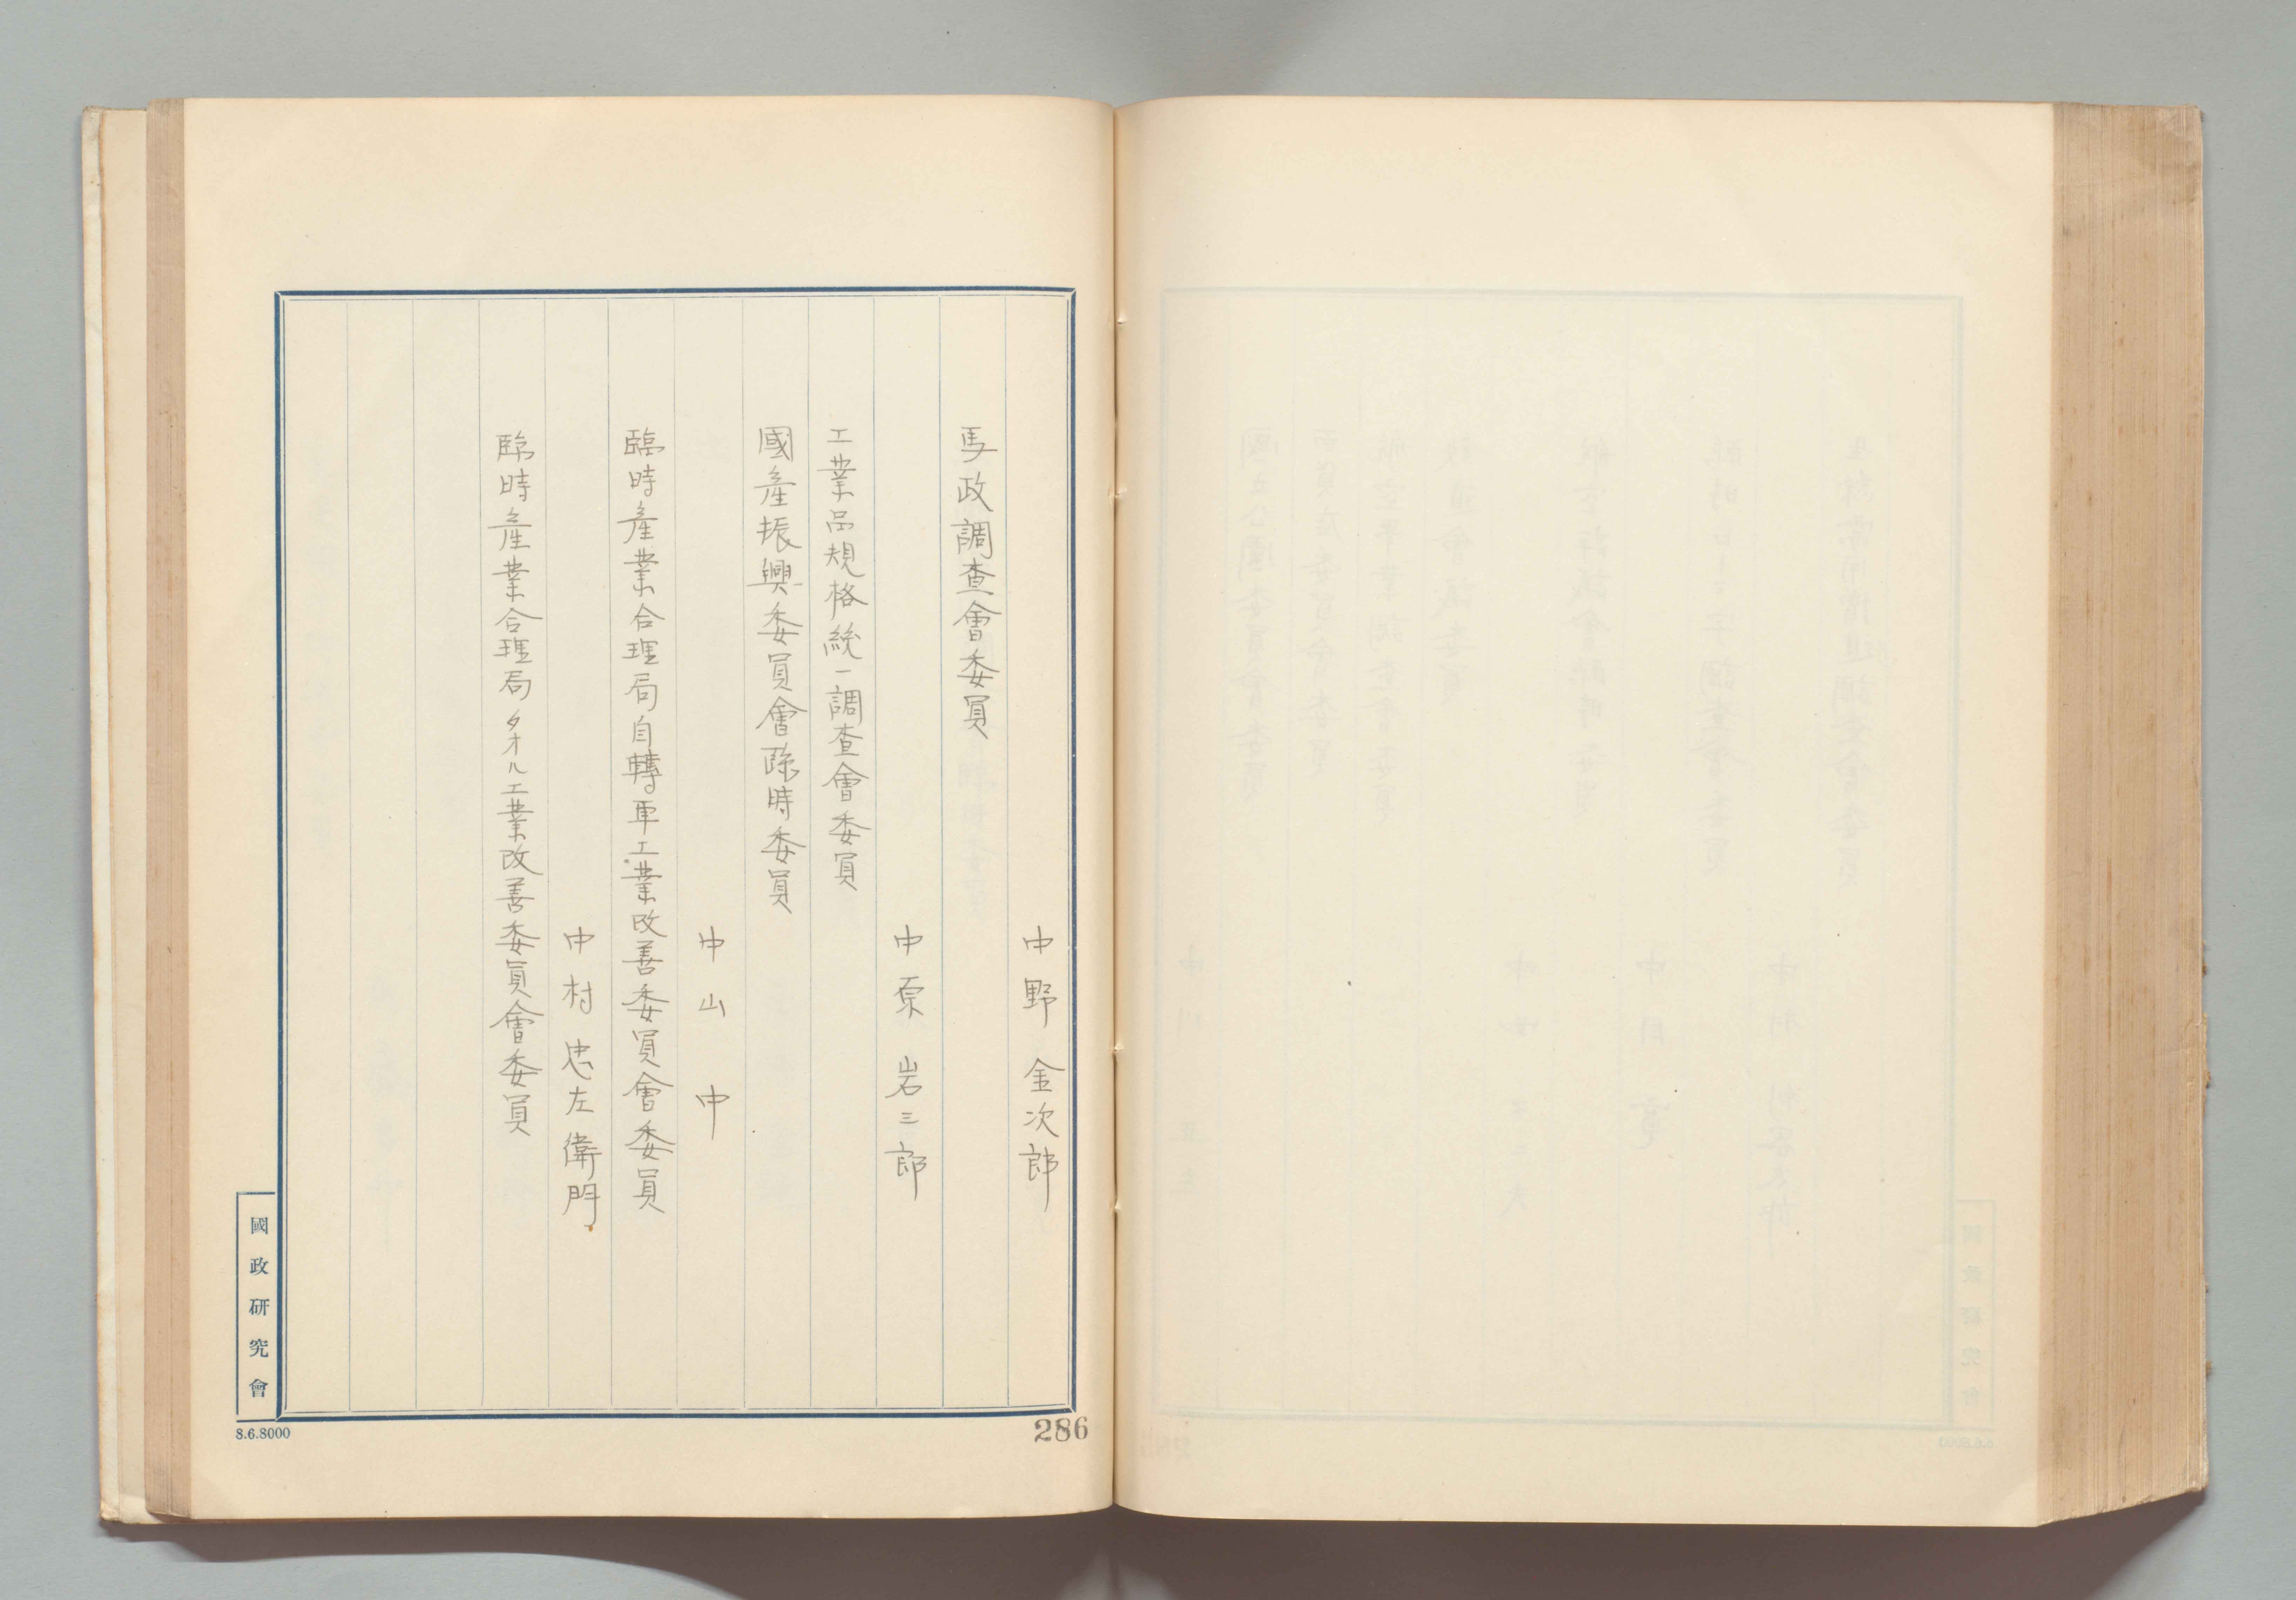 中野金次郎
馬政調査會委員
中原岩三郎
工業品規格統一調査會委員
國産振興委員會臨時委員
中山中
臨時産業合理局自轉車工業改善委員會委員
中村忠左衛門
臨時産業合理局タオル工業改善委員會委員
國政研究會
8.6.8000
286